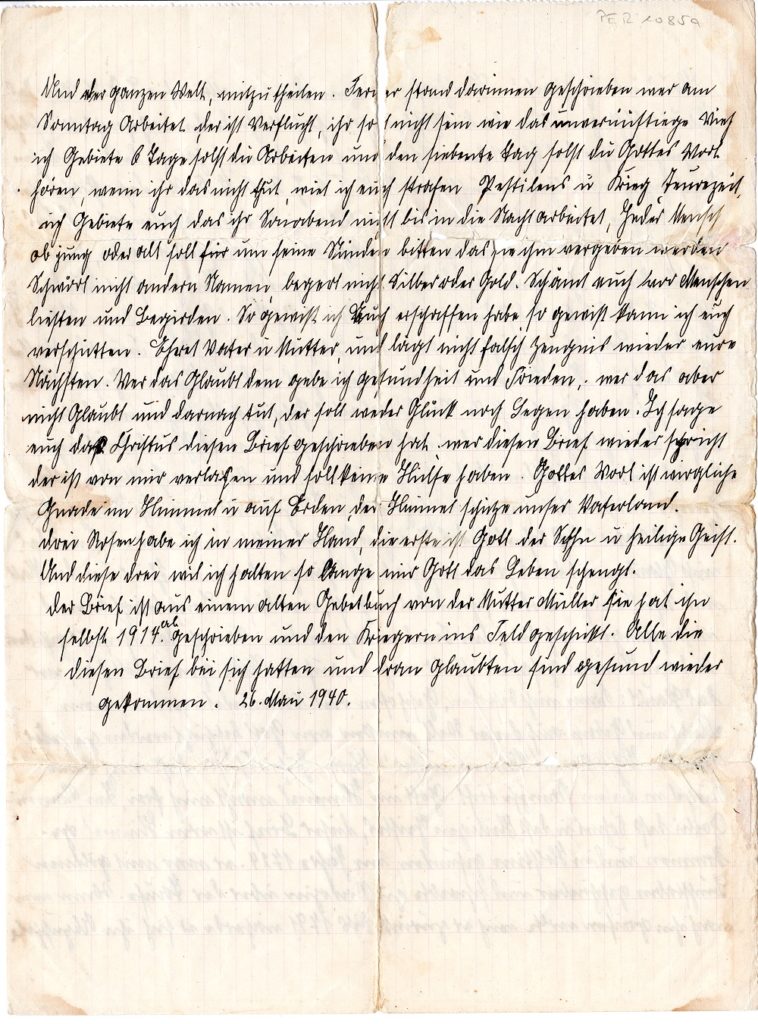 PER 1085a
Und der ganzen Welt, mitzutheilen. Ferner stand darinnen geschrieben wer am
Sonntag Arbeitet der ist Verflucht, ihr solt nicht sein wie das unvernünftiege Vieh
ich Gebiete 6 Tage solst dü Arbeiten und den siebente Tag solst dü Gottes Wort
hören, wenn ihr das nicht tut, wiel ich euch strafen Pestilens ü Krieg Teurezeit,
ich Gebiete euch das ihr Sonabend nicht bis in die Nacht arbeitet, Jeder Mensch
ob jung oder alt soll für um seine Sünden bitten das sie ihm vergeben werden
Schwört nicht andern Namen, begert nicht Silber oder Gold. Schämt euch vor Menschen
lüsten und Begirden. So gewist ich Euch erschaffen habe so gewist kann ich euch
verschütten. Ehret Vater ü Mutter, und lägt nicht falsch Zeugnis wieder eure
Nächsten. Wer das Glaubt dem gebe ich gesundheit und Frieden, wer das aber
nicht Glaubt und darnach tut, der soll weder Glück noch Segen haben. Ich sage
euch das Christus diesen Brief geschrieben hat. wer diesen Brief wieder spricht
der ist von mir verlassen und soll keine Hülfe haben. Gottes Wort ist
Gnade im Himmel ü auf Erden, der Himmel schütze unser Vaterland.
drei Rosen habe ich in meiner Hand, die erste ist Gott der Sohn ü heilige Geist.
Und diese drei wil ich halten so lange mir Gott das Leben schengt.
der Brief ist aus einem alten Gebetbuch von der Mutter Müller sie hat ihn
selbst 1914 ab geschrieben und den Kriegern ins Feld geschikt. Alle die
diesen Brief bei sich hatten und dran glaubten sind gesund wieder
gekommen. 26. Mai 1940.